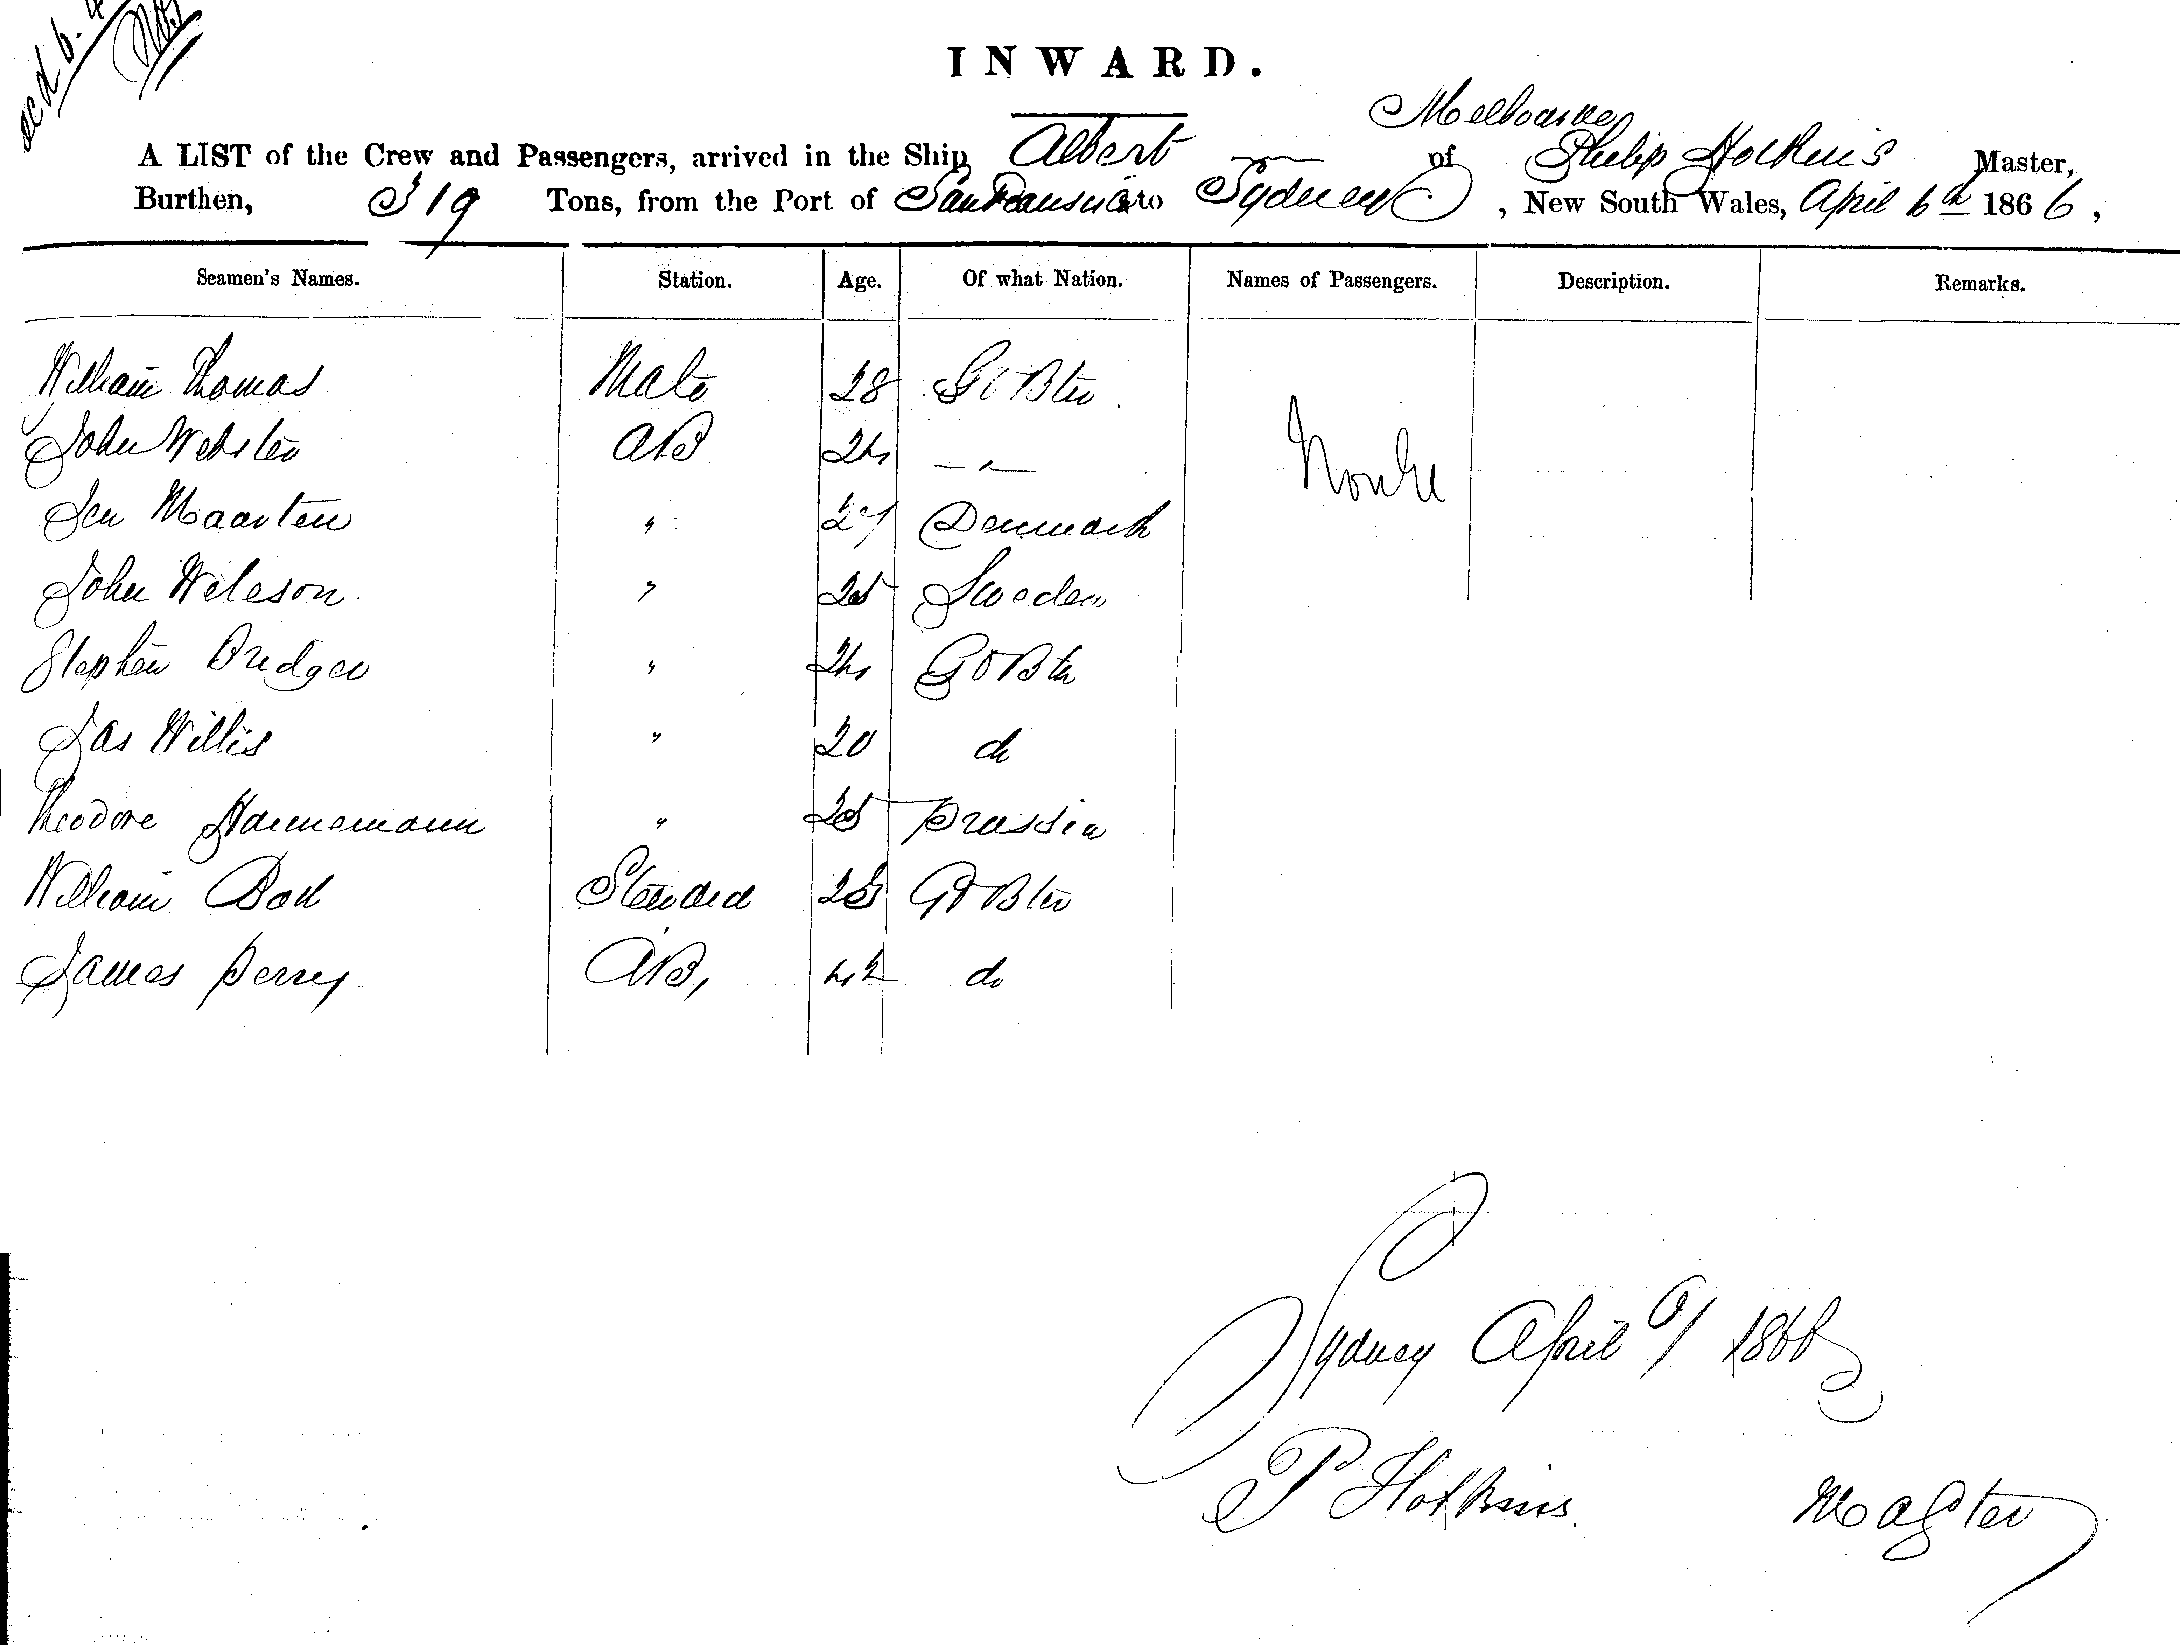 INWARD.
Melbourne
A LIST of the Crew and Passengers, arrived in the Ship Albert of Philip Hotkins Master,
Burthen, 319 Tons, from the Port of San Fransisco to Sydney, New South Wales, April 6th 1866,
Seamen's Names. Station. Age. Of what Nation. Names of Passengers. Description. Remarks.
William Thomas Mate 28 Gt Bten
John Webster AB 24 — " —
Jen Maarten " 27 Denmark
John Wileson " 25 Sweden
Stephen " 24 Gt Btn
Jas Willis " 20 do
Theodore Hannemann " 25 Prussia
William Steward Gt Bten
James Perry AB, 42 do
Sydney April 6/ 1866
P Hotkins Master